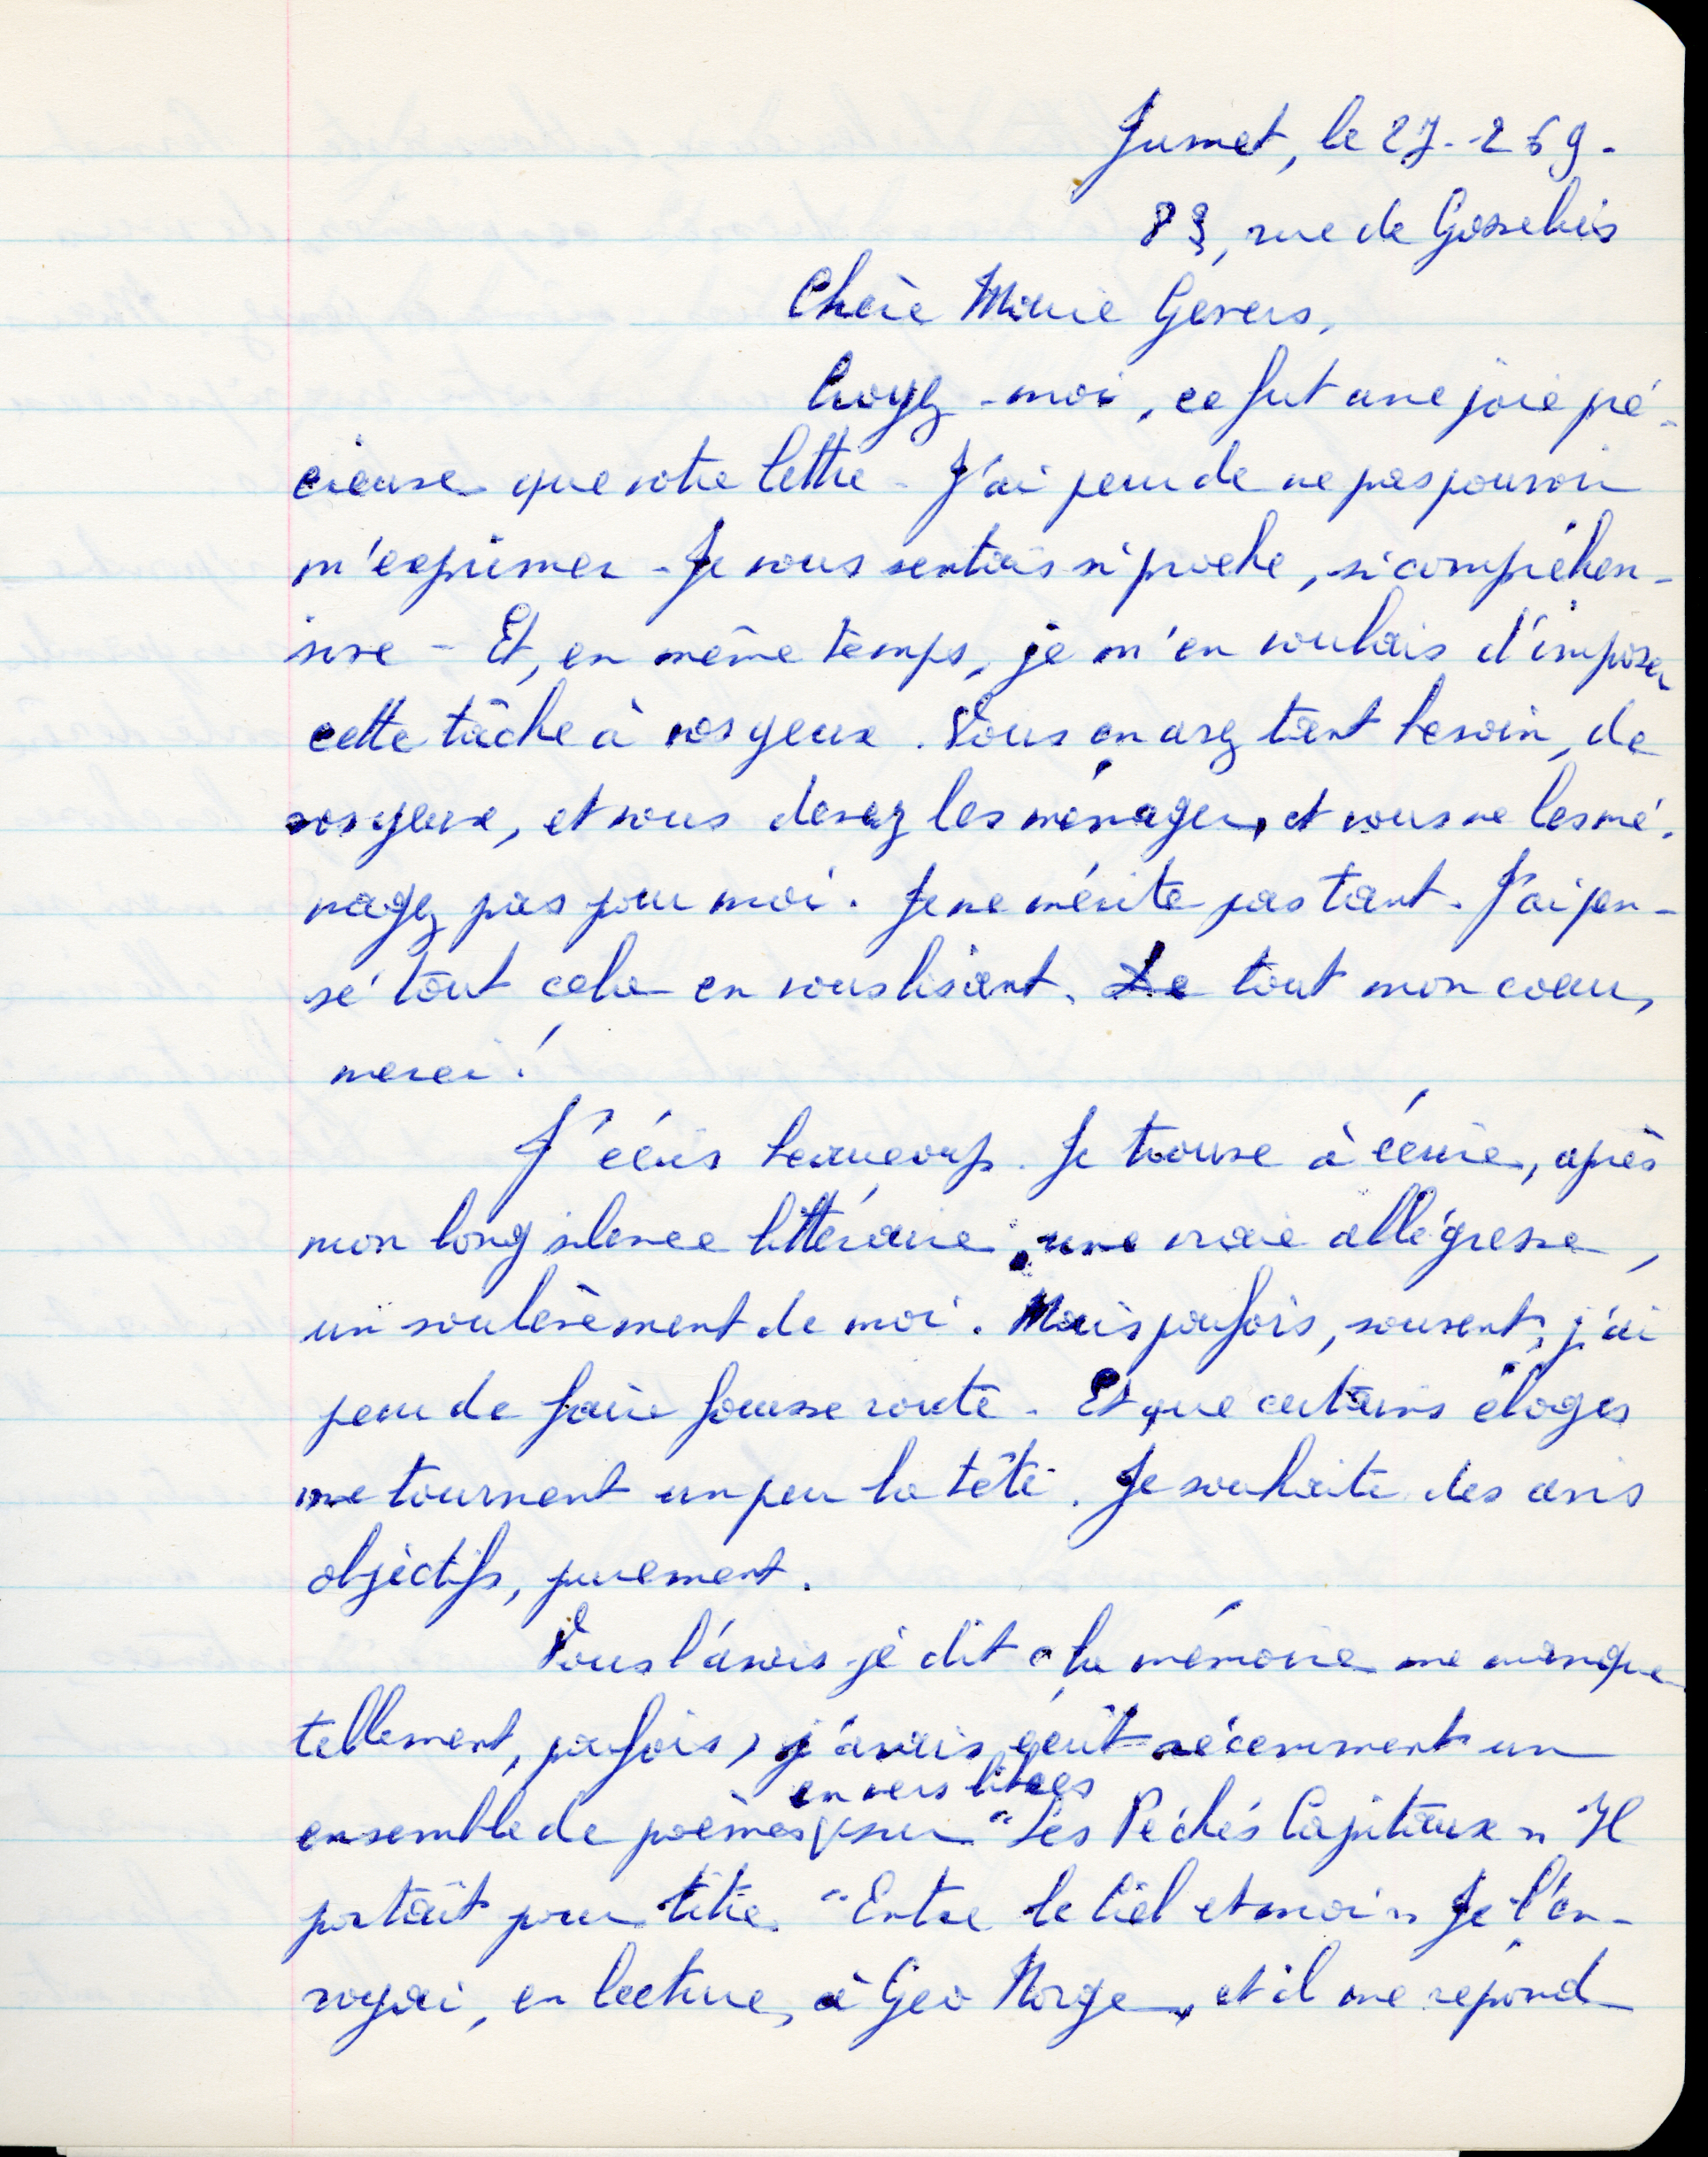 Jumet, le 27-2 69.
83, rue de Gosselies
Chère Marie Gevers,
Croyez-moi, ce fut une joie pré-
cieuse que votre lettre - J'ai peur de ne pas pouvoir
m'exprimer - Je vous sentais si proche, si compréhen-
sive - Et, en même temps, je m'en voulais d'imposer
cette tâche à vos yeux. Vous en avez tant besoin, de
vos yeux, et vous devez les ménager, et vous ne les mé-
nagez pas pour moi. Je ne mérite pas tant. J'ai pen-
sé tout cela en vous lisant. De tout mon cœur,
merci !
J'écris beaucoup. Je trouve à écrire, après
mon long silence littéraire, une vraie allégresse,
un soulèvement de moi. Mais parfois, souvent, j'ai
peur de faire fausse route - Et que certains éloges
me tournent un peu la tête. Je souhaite des avis
objectifs, purement.
Vous l'avais-je dit (la mémoire me manque
tellement, parfois) j'avais écrit récemment un
en vers libres
ensemble de poèmes sur "Les Péchés Capitaux" Il
portait pour titre "Entre le Ciel et moi" Je l'en-
voyai, en lecture, à Geo Norge, et il me répond